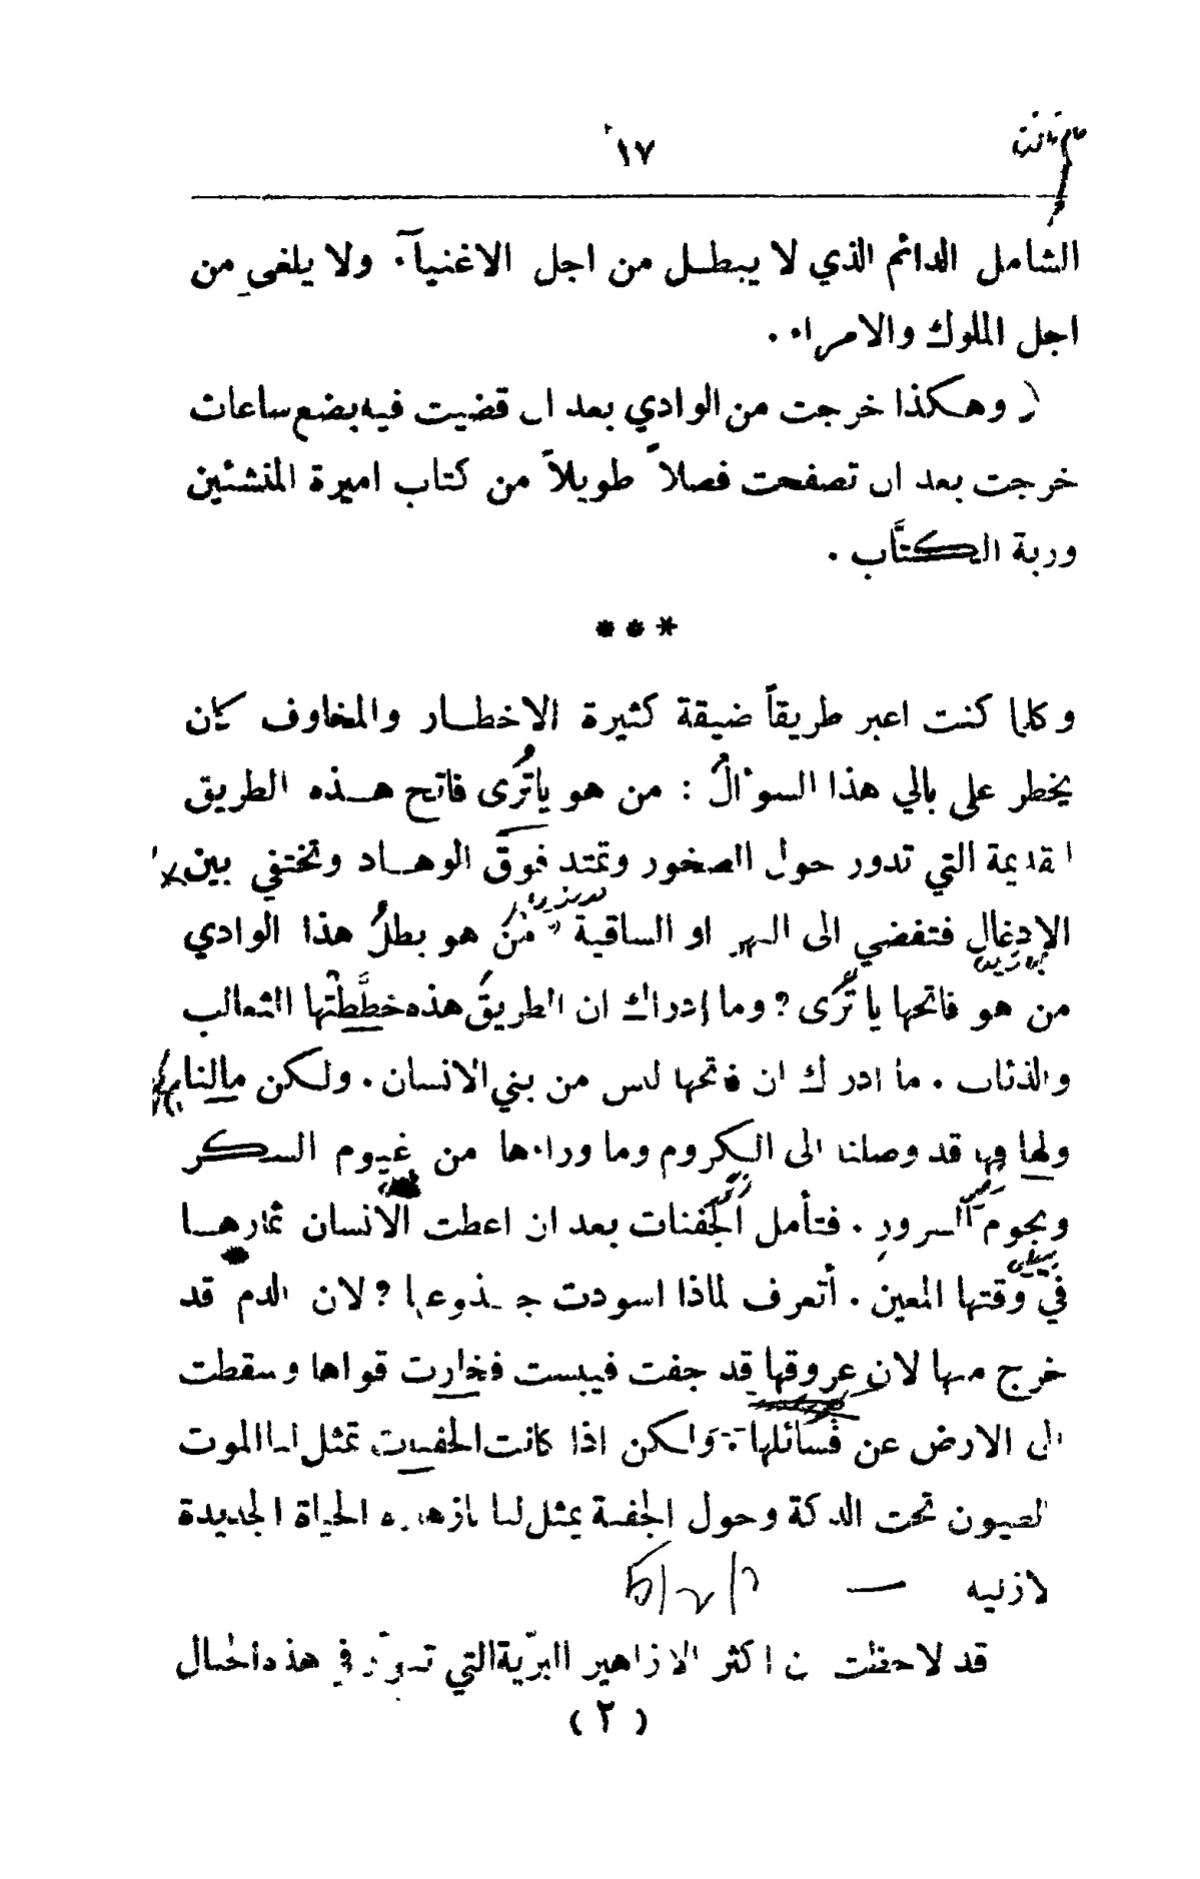 ١٧
الشامل الدائم الذي لا يبطل من اجل الاغنيآء ولا يلغى من
اجل الملوك والامراء .
وهكذا خرجت من الوادي بعد ان قضيت فيه بضع ساعات
خرجت بعد ان تصفحت فصلاً طويلاً من كتاب اميرة المنشئين
وربة الكتَّاب .
***
وكلما كنت اعبر طريقاً ضيقة كثيرة الاخطار والمخاوف كان
يخطر على بالي هذا السوءالُ : من هو ياتُرى فاتح هذه الطريق
القديمة التي تدور حول الصخور وتمتد فوق الوهاد وتختفي بين
الادغال فتفضي الى النهر او الساقية من هو بطلُ هذا الوادي
من هو فاتحها يا تُرى ? وما إدراك ان الطريق هذه خطَّطتها الثعالب
والذئاب . ما ادراك ان فاتحها ليس من بني الانسان . ولكن مالنا
ولها وها قد وصلنا الى الكروم وما وراءها من غيوم السكر
ونجوم السرور . فتأمل الجفنات بعد ان اعطت الانسان ثمارها
في وقتها المعين . أتعرف لماذا اسودت جذوعها ? لان الدم قد
خرج منها لان عروقها قد جفت فيبست فخارت قواها وسقطت
الى الارض عن فسائلها . ولكن اذا كانت الجفنات تمثل لنا الموت
تحت الدكة وحول الجفنة يمثل لنا بازهاره الحياة الجديدة
قد لاحظت ان اكثر الازاهير البرّية التي في هذه الجبال
( ٢ )